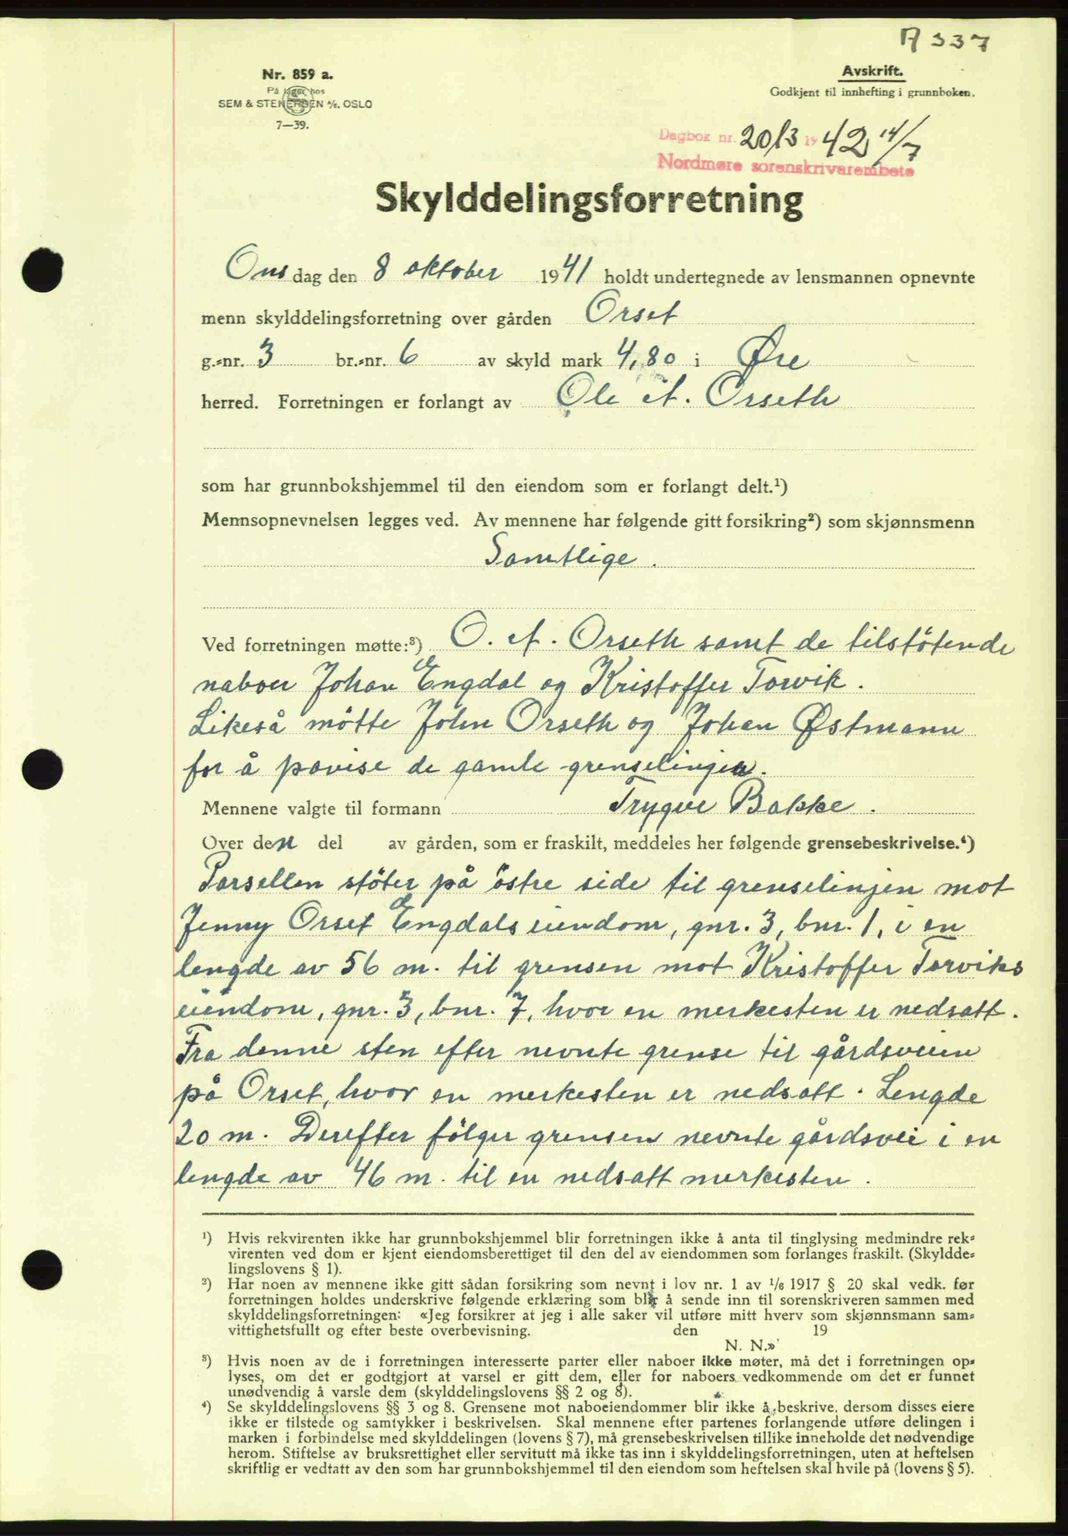 A 337
Nr. 859 a.
På lager hos
SEM & STENERSEN A/S. OSLO
7—39.
Avskrift.
Godkjent til innhefting i grunnboken.
Dagbok nr. 2013 19 42 14/7
Nordmøre sorenskriverembete
Skylddelingsforretning
Onsdag den 8 oktober 1941 holdt undertegnede av lensmannen opnevnte
menn skylddelingsforretning over gården Orset
g.-nr. 3 br.-nr. 6 av skyld mark 4,80 i Øre
herred. Forretningen er forlangt av Ole A. Orseth
som har grunnbokshjemmel til den eiendom som er forlangt delt.¹)
Mennsopnevnelsen legges ved. Av mennene har følgende gitt forsikring²) som skjønnsmenn
Samtlige.
Ved forretningen møtte:³) O. A. Orseth samt de tilstötende
naboer Johan Engdal og Kristoffer Torvik.
Likeså mötte John Orseth og Johan Østmann
for å påvise de gamle grenselinjer.
Mennene valgte til formann Trygve Bakke.
Over den del av gården, som er fraskilt, meddeles her følgende grensebeskrivelse.⁴)
Parsellen stöter på östre side til grenselinjen mot
Jenny Orset Engdals eiendom, gnr. 3, bnr. 1, i en
lengde av 56 m. til grensen mot Kristoffer Torviks
eiendom, gnr. 3, bnr. 7, hvor en merkesten er nedsatt.
Fra denne sten efter nevnte grense til gårdsveien
på Orset, hvor en merkesten er nedsatt. Lengde
20 m. Derefter fölger grensen nevnte gårdsvei i en
lengde av 46 m. til en nedsatt merkesten.
¹) Hvis rekvirenten ikke har grunnbokshjemmel blir forretningen ikke å anta til tinglysing medmindre rek-
virenten ved dom er kjent eiendomsberettiget til den del av eiendommen som forlanges fraskilt. (Skyldde-
lingslovens § 1).
²) Har noen av mennene ikke gitt sådan forsikring som nevnt i lov nr. 1 av 1/6 1917 § 20 skal vedk. før
forretningen holdes underskrive følgende erklæring som blir å sende inn til sorenskriveren sammen med
skylddelingsforretningen: «Jeg forsikrer at jeg i alle saker vil utføre mitt hverv som skjønnsmann sam-
vittighetsfullt og efter beste overbevisning. den 19
N. N.»
³) Hvis noen av de i forretningen interesserte parter eller naboer ikke møter, må det i forretningen op-
lyses, om det er godtgjort at varsel er gitt dem, eller for naboers vedkommende om det er funnet
unødvendig å varsle dem (skylddelingslovens §§ 2 og 8).
⁴) Se skylddelingslovens §§ 3 og 8. Grensene mot naboeiendommer blir ikke å beskrive, dersom disses eiere
ikke er tilstede og samtykker i beskrivelsen. Skal mennene efter partenes forlangende utføre delingen i
marken i forbindelse med skylddelingen (lovens § 7), må grensebeskrivelsen tillike inneholde det nødvendige
herom. Stiftelse av bruksrettighet eller servitutt må ikke tas inn i skylddelingsforretningen, uten at heftelsen
skriftlig er vedtatt av den som har grunnbokshjemmel til den eiendom som heftelsen skal hvile på (lovens § 5).